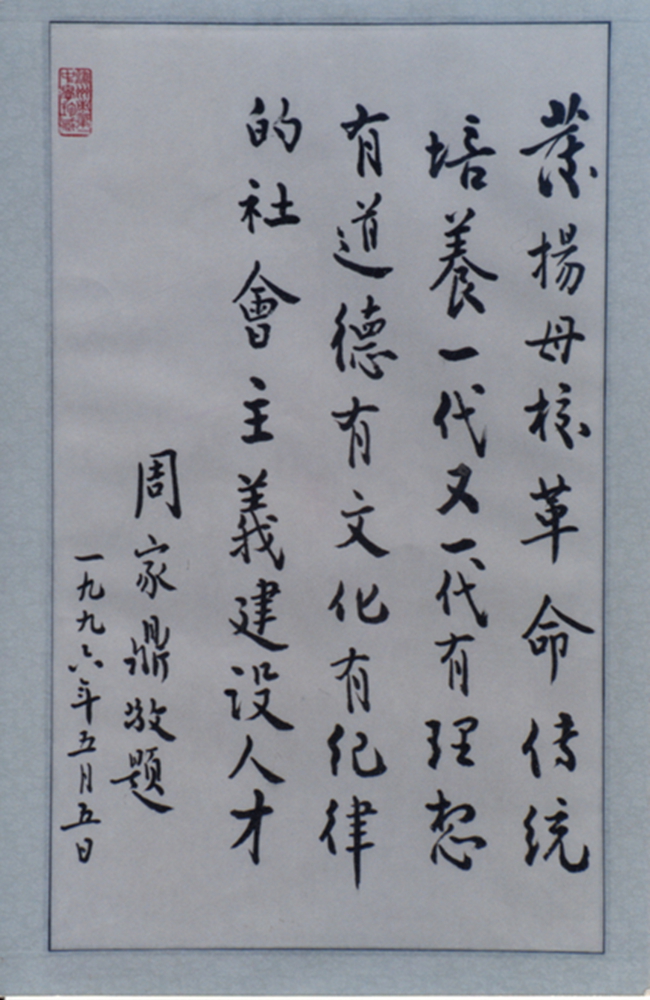 發揚母校革命傳統
培養一代又一代有理想
有道德有文化有纪律
的社會主義建設人才
周家鼎敬题
一九九六年五月五日